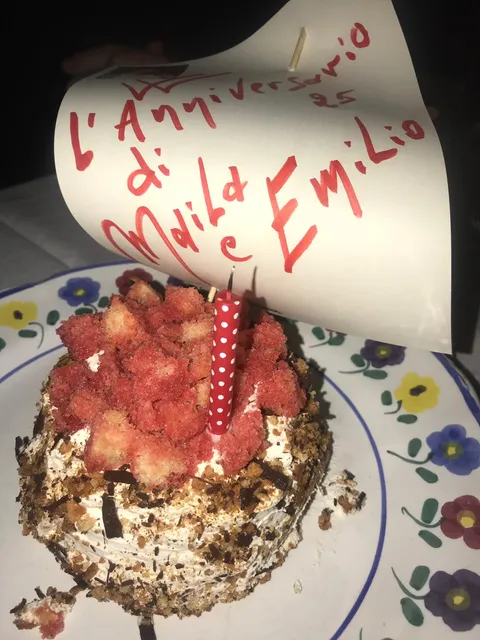 W
L'Anniversario
25
di
Maila
e Emilio